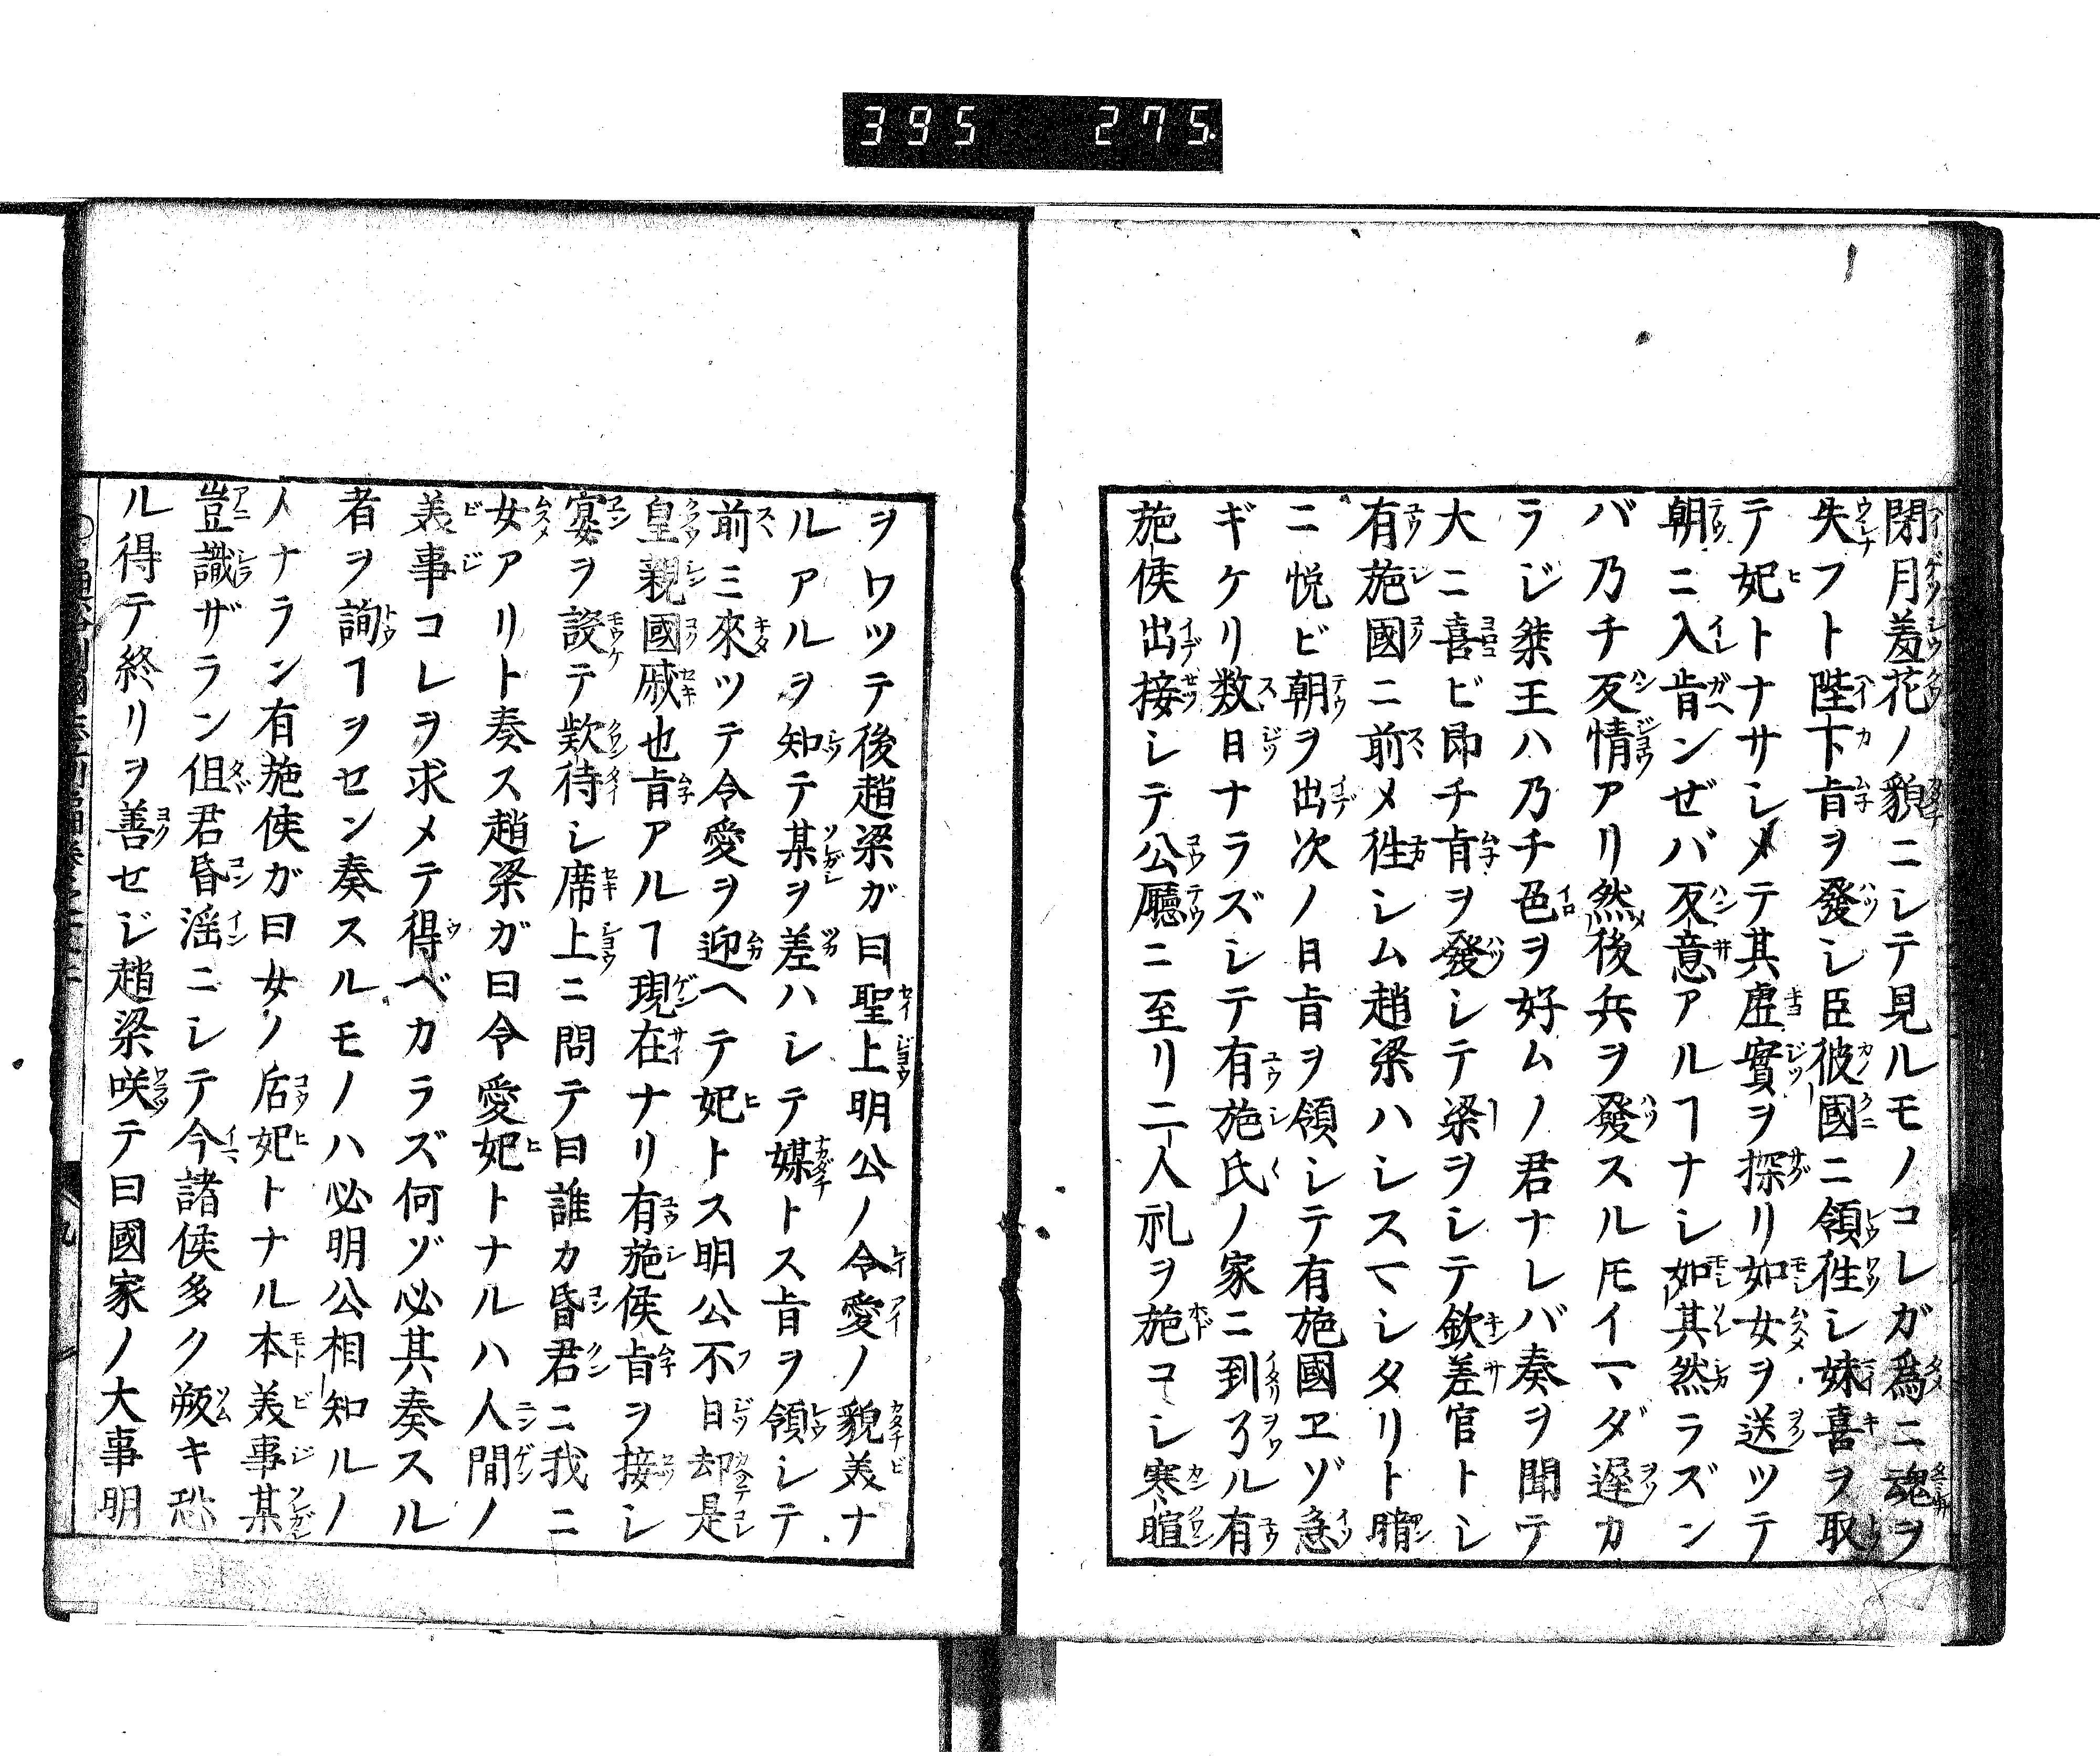 395 275.
閉月羞花ノ貌ニシテ見ルモノコレガ爲ニ魂ヲ
失フト陛下旨ヲ發シ臣彼國ニ領徃シ妹喜ヲ取
テ妃トナサシメテ其虚實ヲ探リ如女ヲ送ツテ
朝ニ入肯ンゼバ反意アルヿナシ如其然ラズン
バ乃チ反情アリ然後兵ヲ發スルモイマダ遅カ
ラジ桀王ハ乃チ色ヲ好ムノ君ナレバ奏ヲ聞テ
大ニ喜ビ即チ旨ヲ發シテ梁ヲシテ欽差官トシ
有施國ニ前メ徃シム趙梁ハシスマシタリト暗
ニ悦ビ朝ヲ出次ノ日旨ヲ領シテ有施國ヱゾ急
ギケリ数日ナラズシテ有施氏ノ家ニ到了ル有
施侯出接シテ公廳ニ至リ二人礼ヲ施コシ寒暄
ヲワツテ後趙梁ガ曰聖上明公ノ令愛ノ貌美ナ
ルアルヲ知テ某ヲ差ハシテ媒トス旨ヲ領シテ
前ミ來ツテ令愛ヲ迎ヘテ妃トス明公不日却是
皇親國戚也旨アルヿ現在ナリ有施侯旨ヲ接シ
宴ヲ設テ欵待シ席上ニ問テ曰誰カ昏君ニ我ニ
女アリト奏ス趙梁ガ曰令愛妃トナルハ人間ノ
美事コレヲ求メテ得ベカラズ何ゾ必其奏スル
者ヲ詢ヿヲセン奏スルモノハ必明公相知ルノ
人ナラン有施侯ガ曰女ノ后妃トナル本美事某
豈識ザラン但君昏淫ニシテ今諸侯多ク叛キ恐
ル得テ終リヲ善セジ趙梁咲テ曰國家ノ大事明